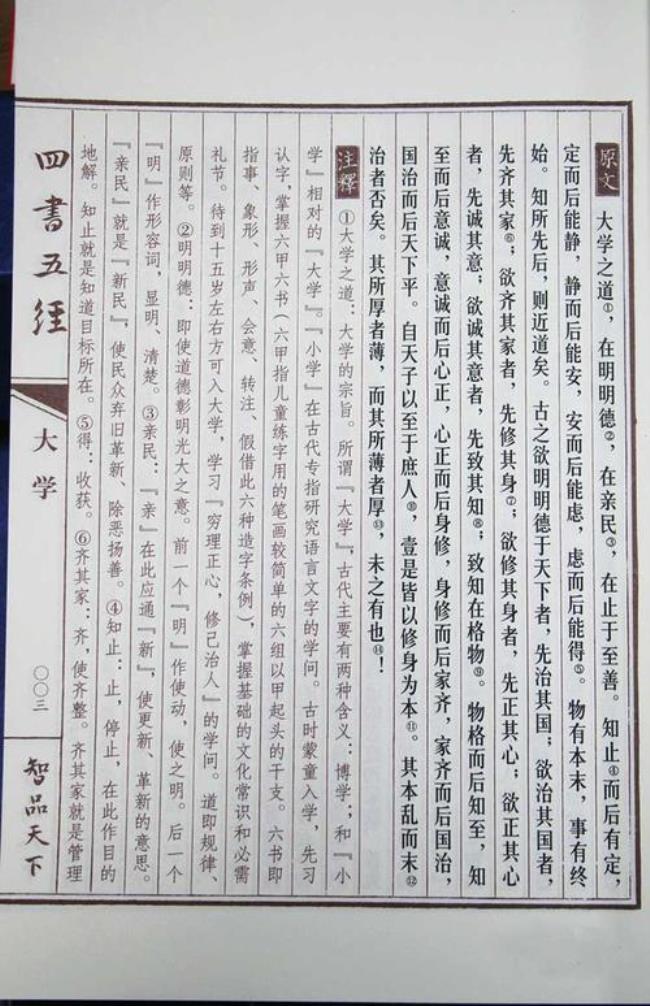 原文 大学之道①，在明明德②，在亲民③，在止于至善。知止④而后有定，
定而后能静，静而后能安，安而后能虑，虑而后能得⑤。物有本末，事有终
始。知所先后，则近道矣。古之欲明明德于天下者，先治其国；欲治其国者，
先齐其家⑥；欲齐其家者，先修其身⑦；欲修其身者，先正其心；欲正其心
者，先诚其意；欲诚其意者，先致其知⑧；致知在格物⑨。物格而后知至，知
至而后意诚，意诚而后心正，心正而后身修，身修而后家齐，家齐而后国治，
国治而后天下平。自天子以至于庶人⑩，壹是皆以修身为本⑪。其本乱而末⑫
治者否矣。其所厚者薄，而其所薄者厚⑬，未之有也⑭！
注释 ①大学之道：大学的宗旨。所谓『大学』，古代主要有两种含义：博学；和『小
学』相对的『大学』。『小学』在古代专指研究语言文字的学问。古时蒙童入学，先习
认字，掌握六甲六书（六甲指儿童练字用的笔画较简单的六组以甲起头的干支。六书即
指事、象形、形声、会意、转注、假借此六种造字条例），掌握基础的文化常识和必需
礼节。待到十五岁左右方可入大学，学习『穷理正心，修己治人』的学问。道即规律、
原则等。②明明德：即使道德彰明光大之意。前一个『明』作使动，使之明。后一个
『明』作形容词，显明、清楚。③亲民：『亲』在此应通『新』，使更新、革新的意思。
『亲民』就是『新民』，使民众弃旧革新、除恶扬善。④知止：止，停止，在此作目的
地解。知止就是知道目标所在。⑤得：收获。⑥齐其家：齐，使齐整。齐其家就是管理
四書五经
大学
〇〇三
智品天下